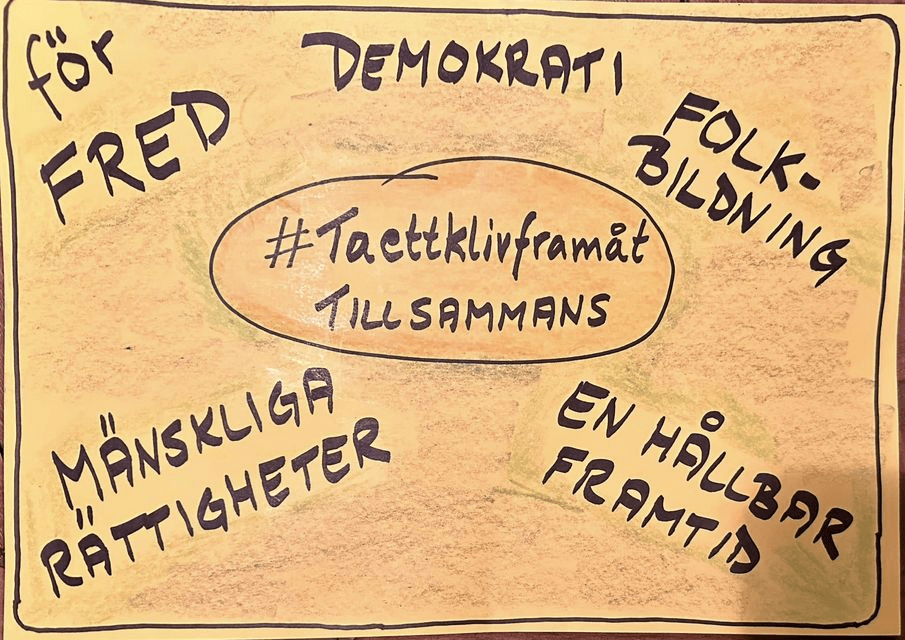 för
FRED
DEMOKRATI
FOLK-
BILDNING
#Taettklivframåt
TILLSAMMANS
MÄNSKLIGA
RÄTTIGHETER
EN HÅLLBAR
FRAMTID